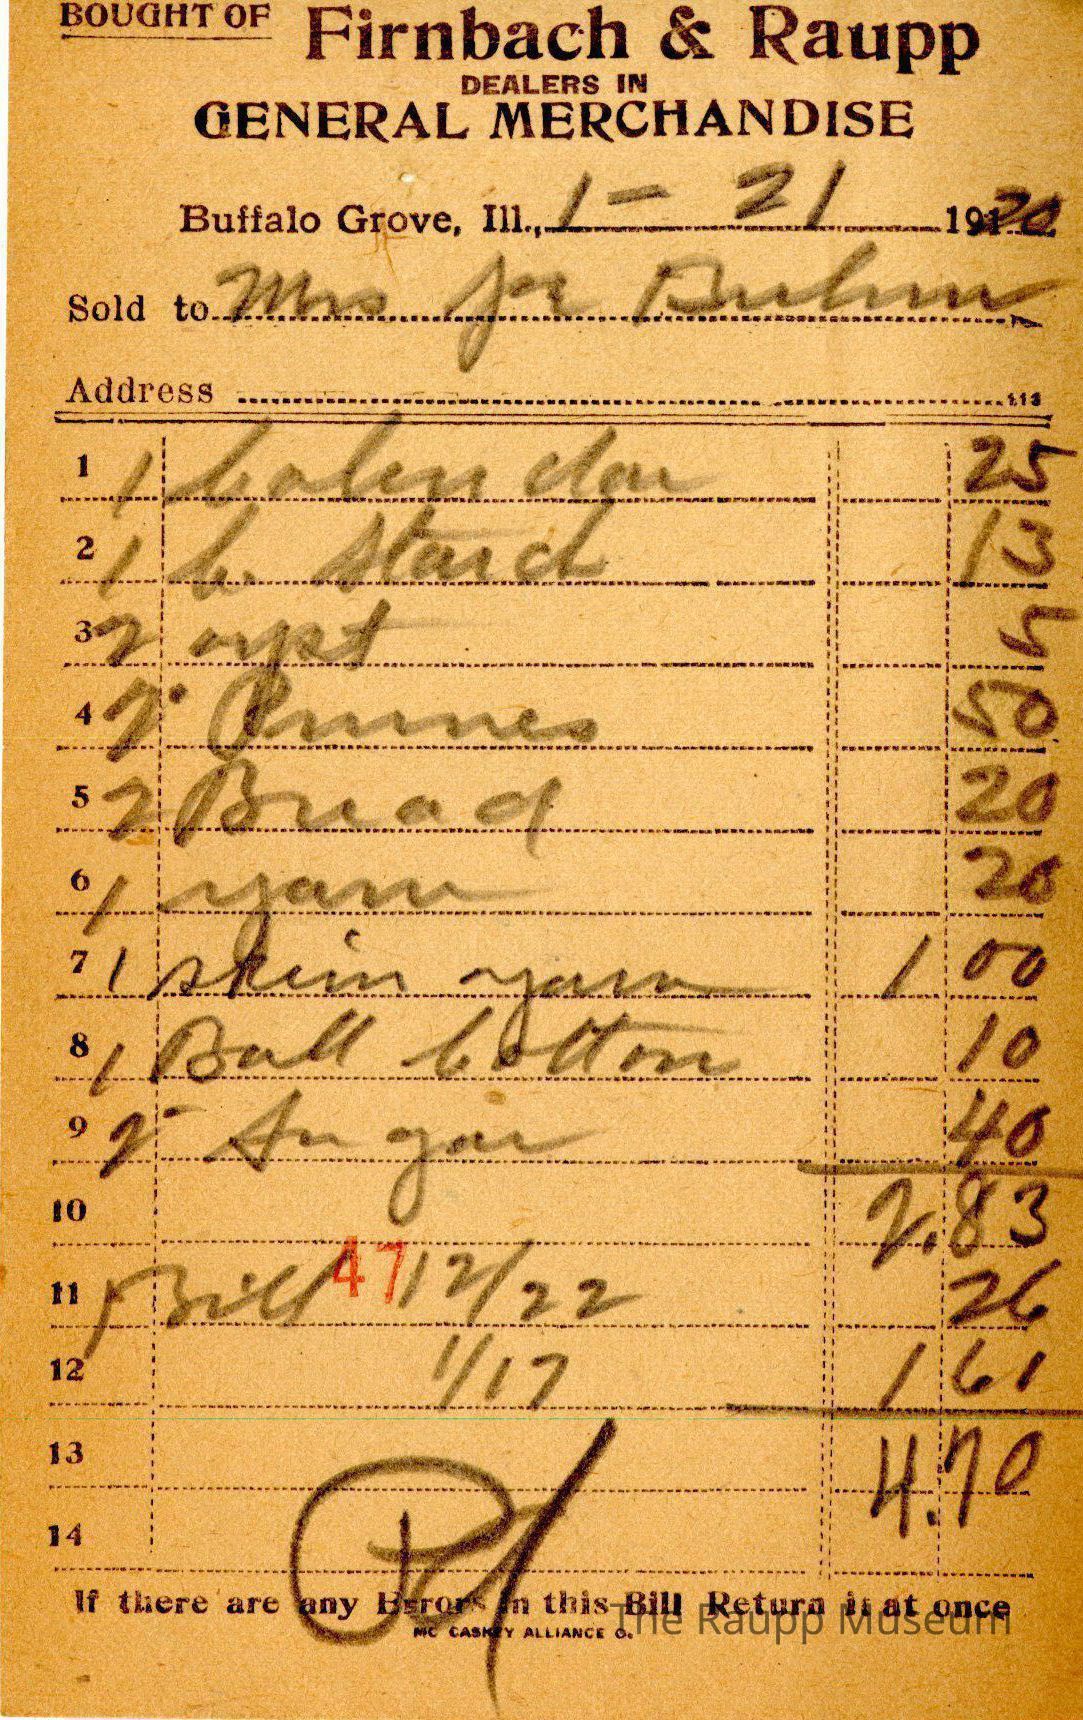 BOUGHT OF Firnbach & Raupp
DEALERS IN
GENERAL MERCHANDISE
Buffalo Grove, Ill., 1 - 21 1920
Sold to Mrs
Address 113
1 1 Calendar 25
2 1 C. Starch 13
3 2 5
4 2 Prunes 50
5 2 Bread 20
6 1 yarn 20
7 1 skein yarn 1 00
8 1 Ball Cotton 10
9 2 Sugar 40
10 2.83
11 Bill 47 12/22 26
12 1/17 1 61
13 4.70
14 Pd
If there are any Errors in this Bill Return it at once
MC CASKEY ALLIANCE O.
The Raupp Museum